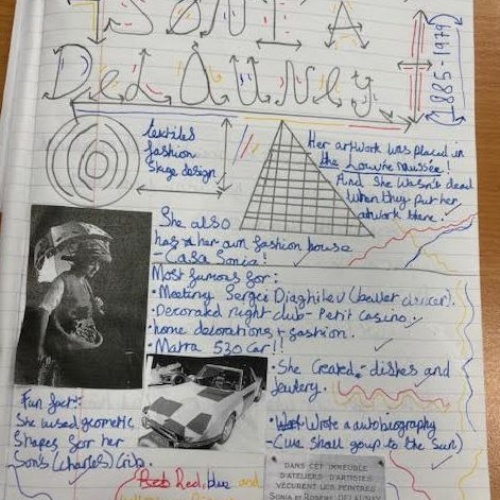 SONIA
Delauney
(1885-1979)
textiles
fashion
stage design
Her artwork was placed in
the Louvre Mussée!
And she wasn't dead
when they put her
artwork there.
She also
has her own fashion house
- Casa Sonia!
Most famous for:
• Meeting Sergei Diaghilev (ballet dancer).
• Decorated night club - Petit Casino.
• home decorations + fashion.
• Matra 530 Car!!
• She created dishes and
jewlery.
• Wrote a autobiography
- (We shall go up to the sun)
Fun fact:
She used geometric
shapes for her
Son's (Charles) Crib.
Red, blue and
DANS CET IMMEUBLE
D'ATELIERS D'ARTISTES
VECURENT LES PEINTRES
SONIA et ROBERT DELAUNAY